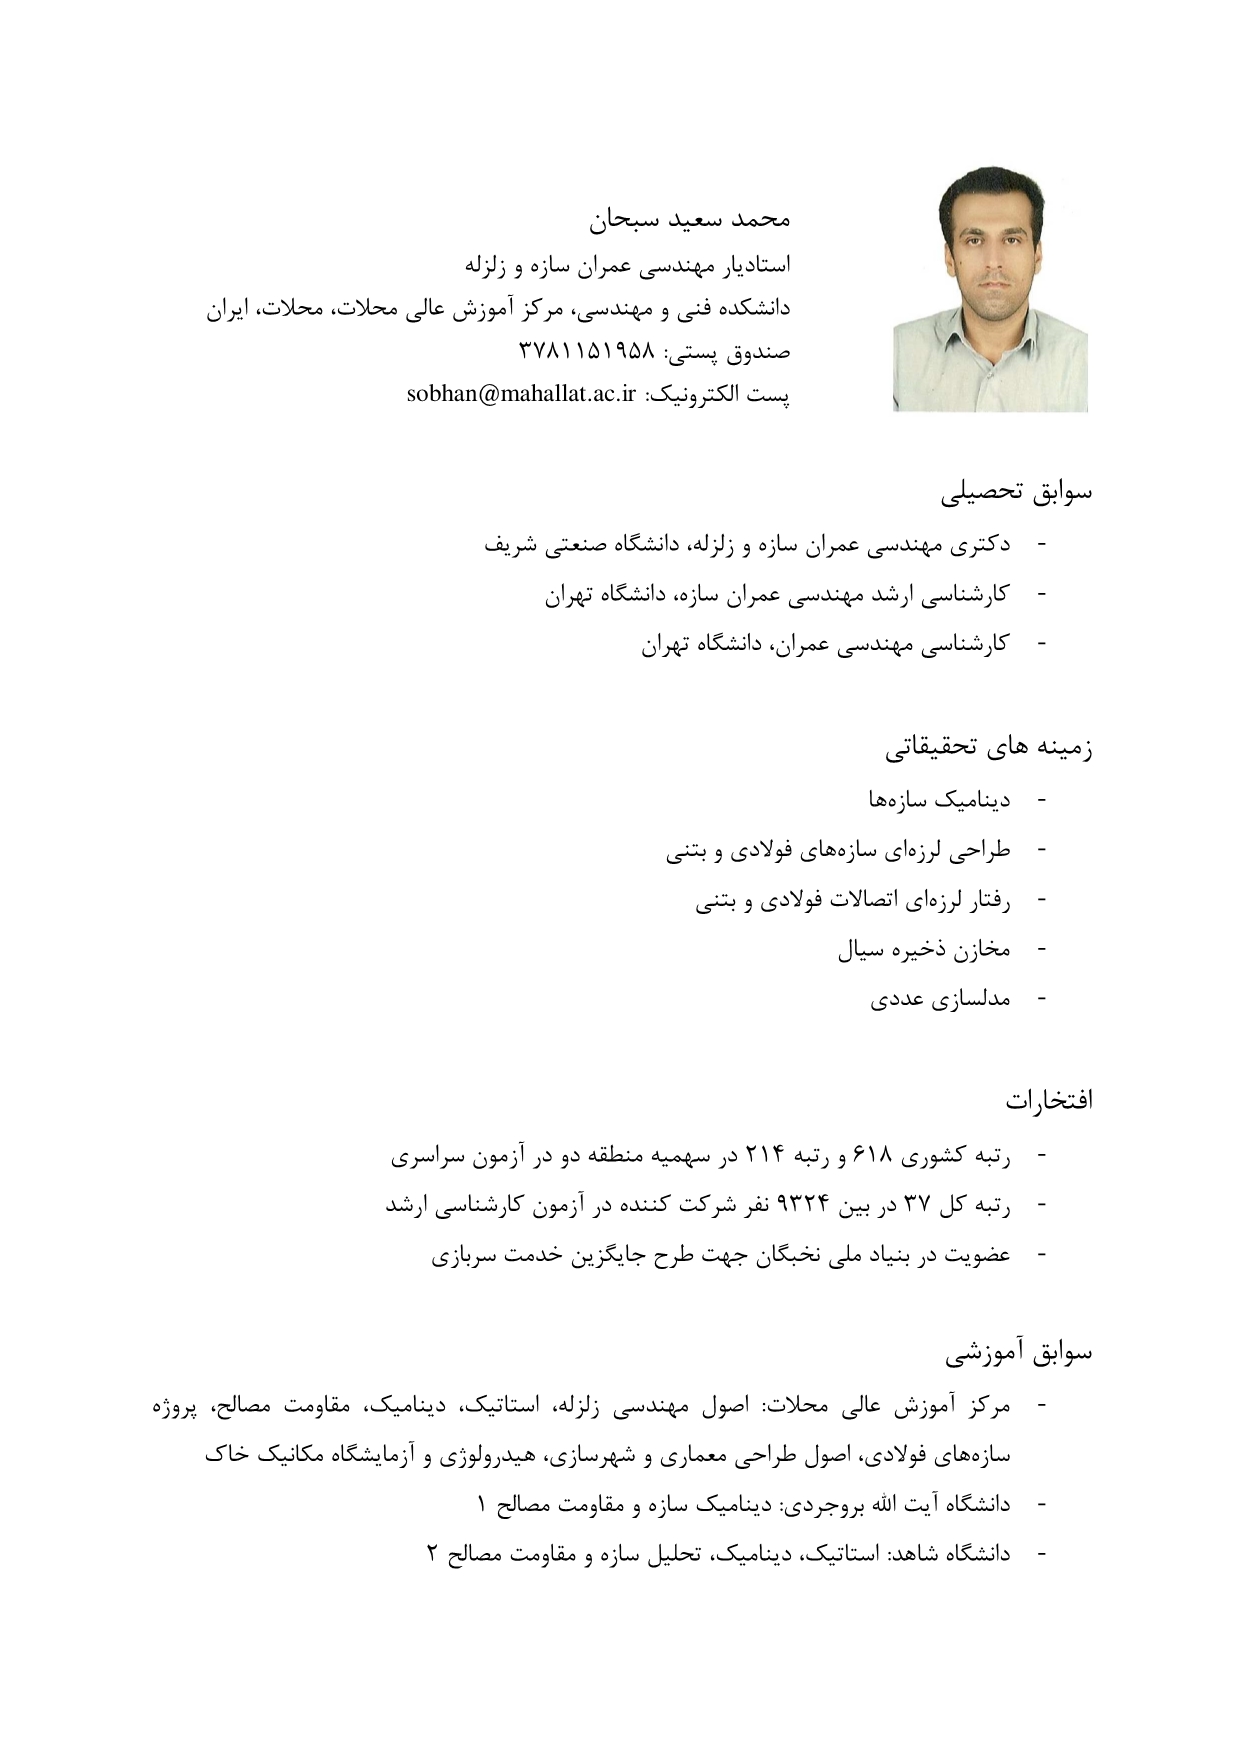 محمد سعید سبحان
استادیار مهندسی عمران سازه و زلزله
دانشکده فنی و مهندسی، مرکز آموزش عالی محلات، محلات، ایران
صندوق پستی: ۳۷۸۱۱۵۱۹۵۸
پست الکترونیک: sobhan@mahallat.ac.ir
سوابق تحصیلی
- دکتری مهندسی عمران سازه و زلزله، دانشگاه صنعتی شریف
- کارشناسی ارشد مهندسی عمران سازه، دانشگاه تهران
- کارشناسی مهندسی عمران، دانشگاه تهران
زمینه های تحقیقاتی
- دینامیک سازه‌ها
- طراحی لرزه‌ای سازه‌های فولادی و بتنی
- رفتار لرزه‌ای اتصالات فولادی و بتنی
- مخازن ذخیره سیال
- مدلسازی عددی
افتخارات
- رتبه کشوری ۶۱۸ و رتبه ۲۱۴ در سهمیه منطقه دو در آزمون سراسری
- رتبه کل ۳۷ در بین ۹۳۲۴ نفر شرکت کننده در آزمون کارشناسی ارشد
- عضویت در بنیاد ملی نخبگان جهت طرح جایگزین خدمت سربازی
سوابق آموزشی
- مرکز آموزش عالی محلات: اصول مهندسی زلزله، استاتیک، دینامیک، مقاومت مصالح، پروژه
سازه‌های فولادی، اصول طراحی معماری و شهرسازی، هیدرولوژی و آزمایشگاه مکانیک خاک
- دانشگاه آیت الله بروجردی: دینامیک سازه و مقاومت مصالح ۱
- دانشگاه شاهد: استاتیک، دینامیک، تحلیل سازه و مقاومت مصالح ۲